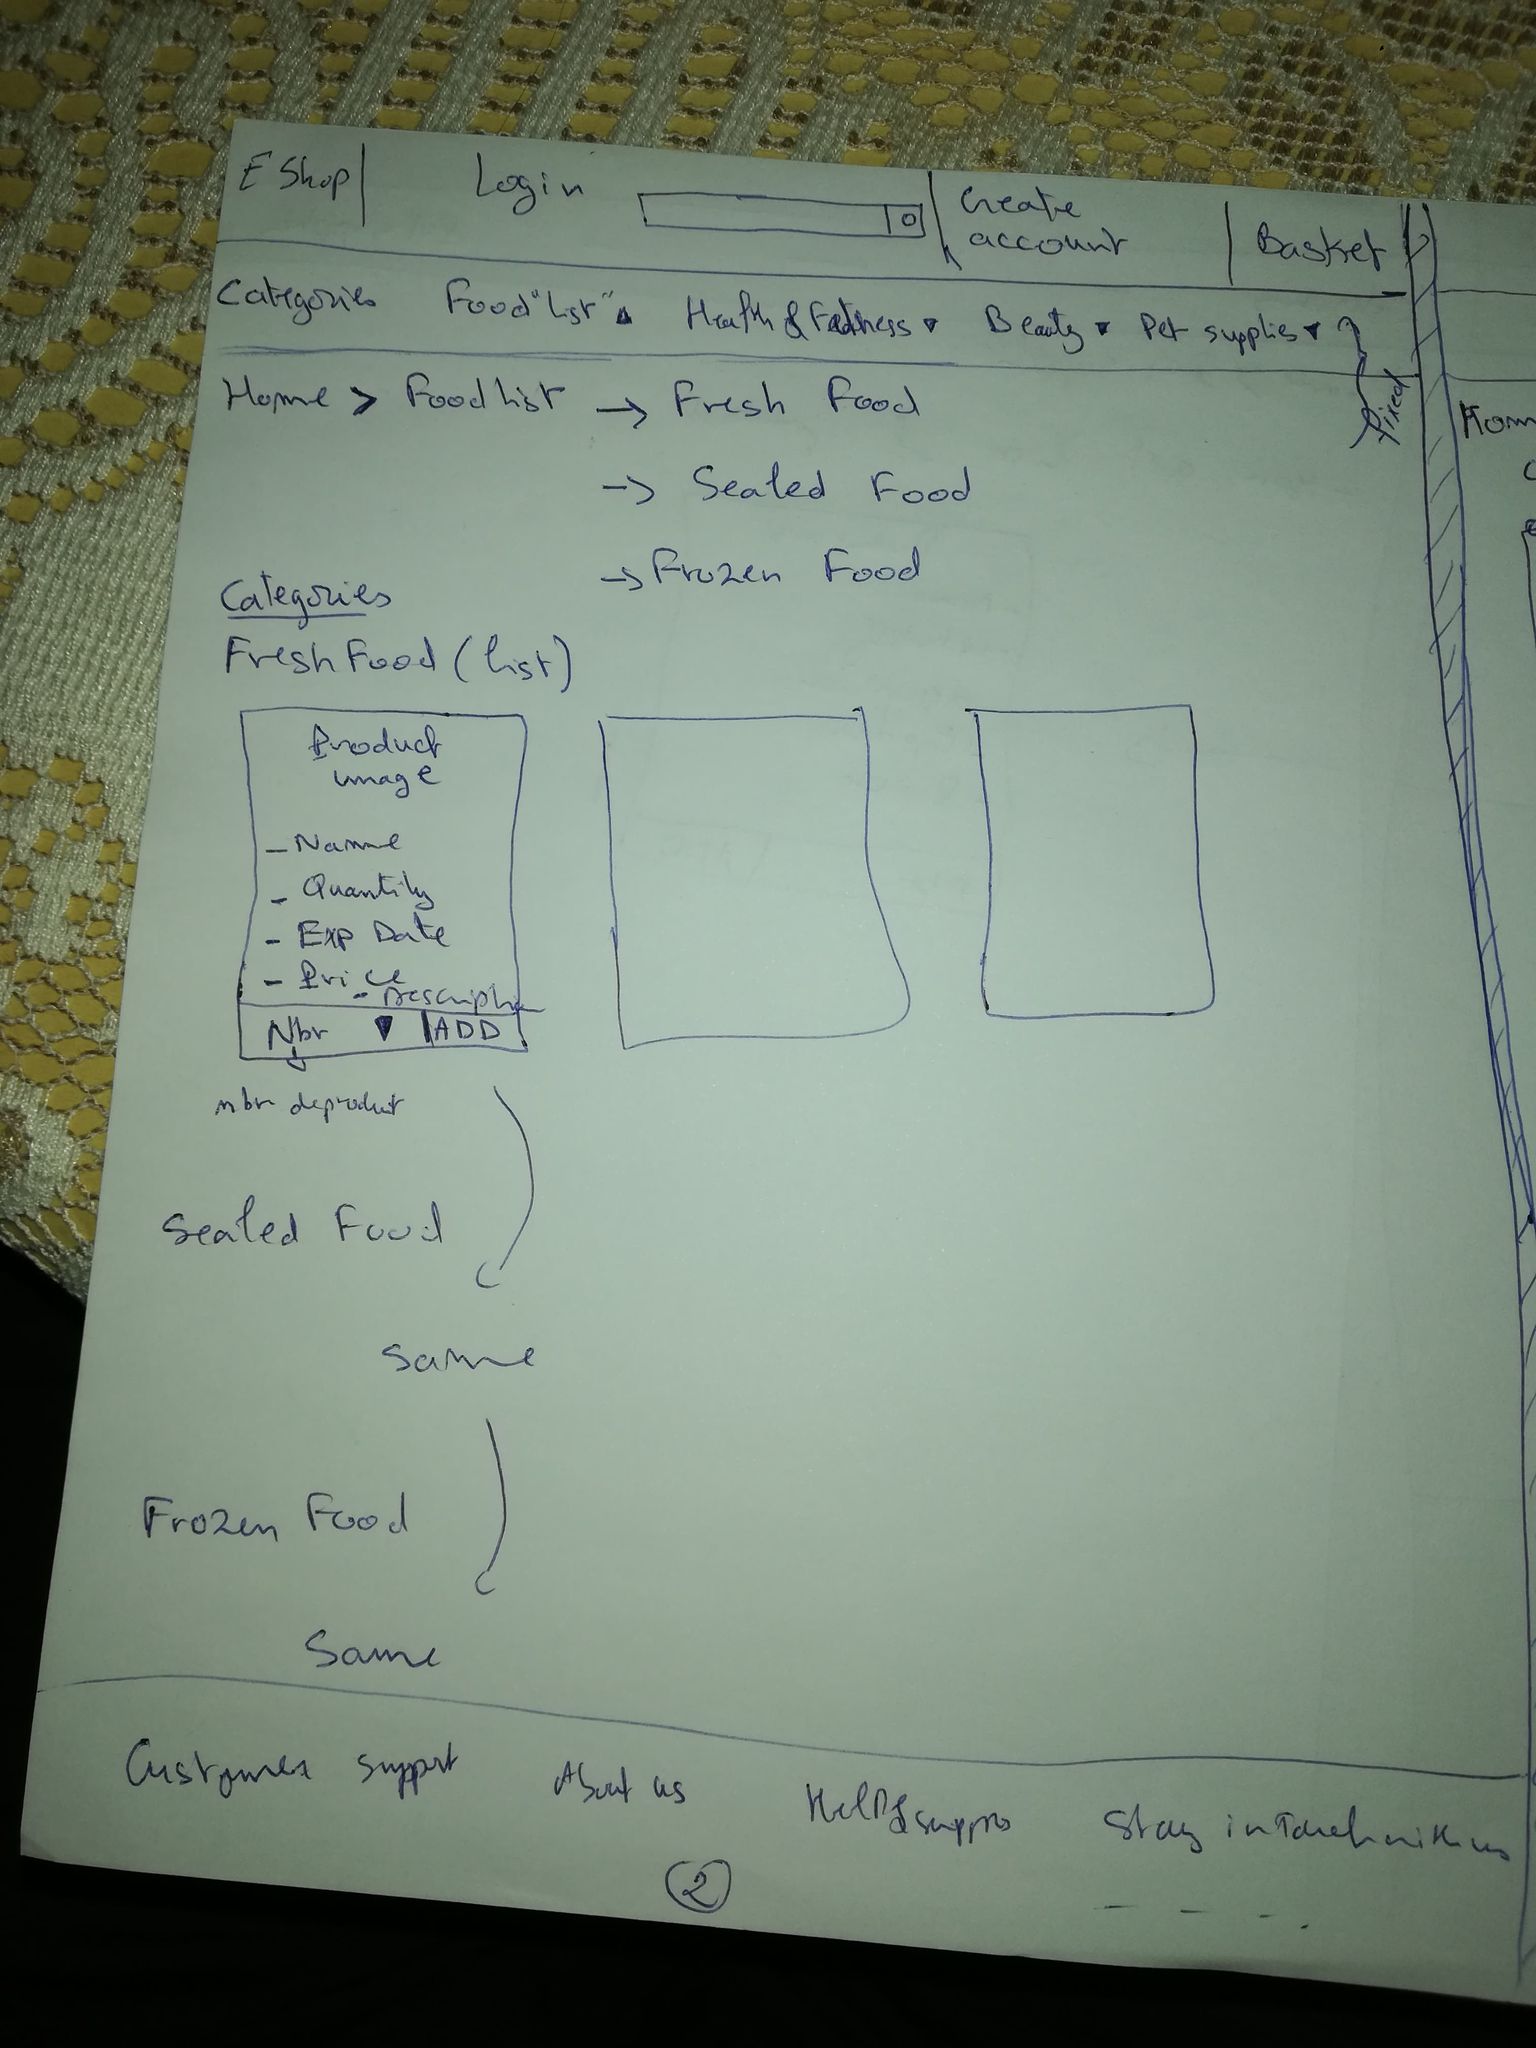 E Shop Login Create account Basket
Categories Food "list" Health & Fetness Beauty Pet supplies
fixed
Home > Food list → Fresh Food
→ Sealed Food
→ Frozen Food
Categories
Fresh Food (list)
Product
image
- Name
- Quantity
- Exp Date
- Price
- Descripti
Nbr ADD
nbr de produit
Sealed Food
Same
Frozen Food
Same
Customer support About us Help & suppro Stay in Touch with us
2
Hom